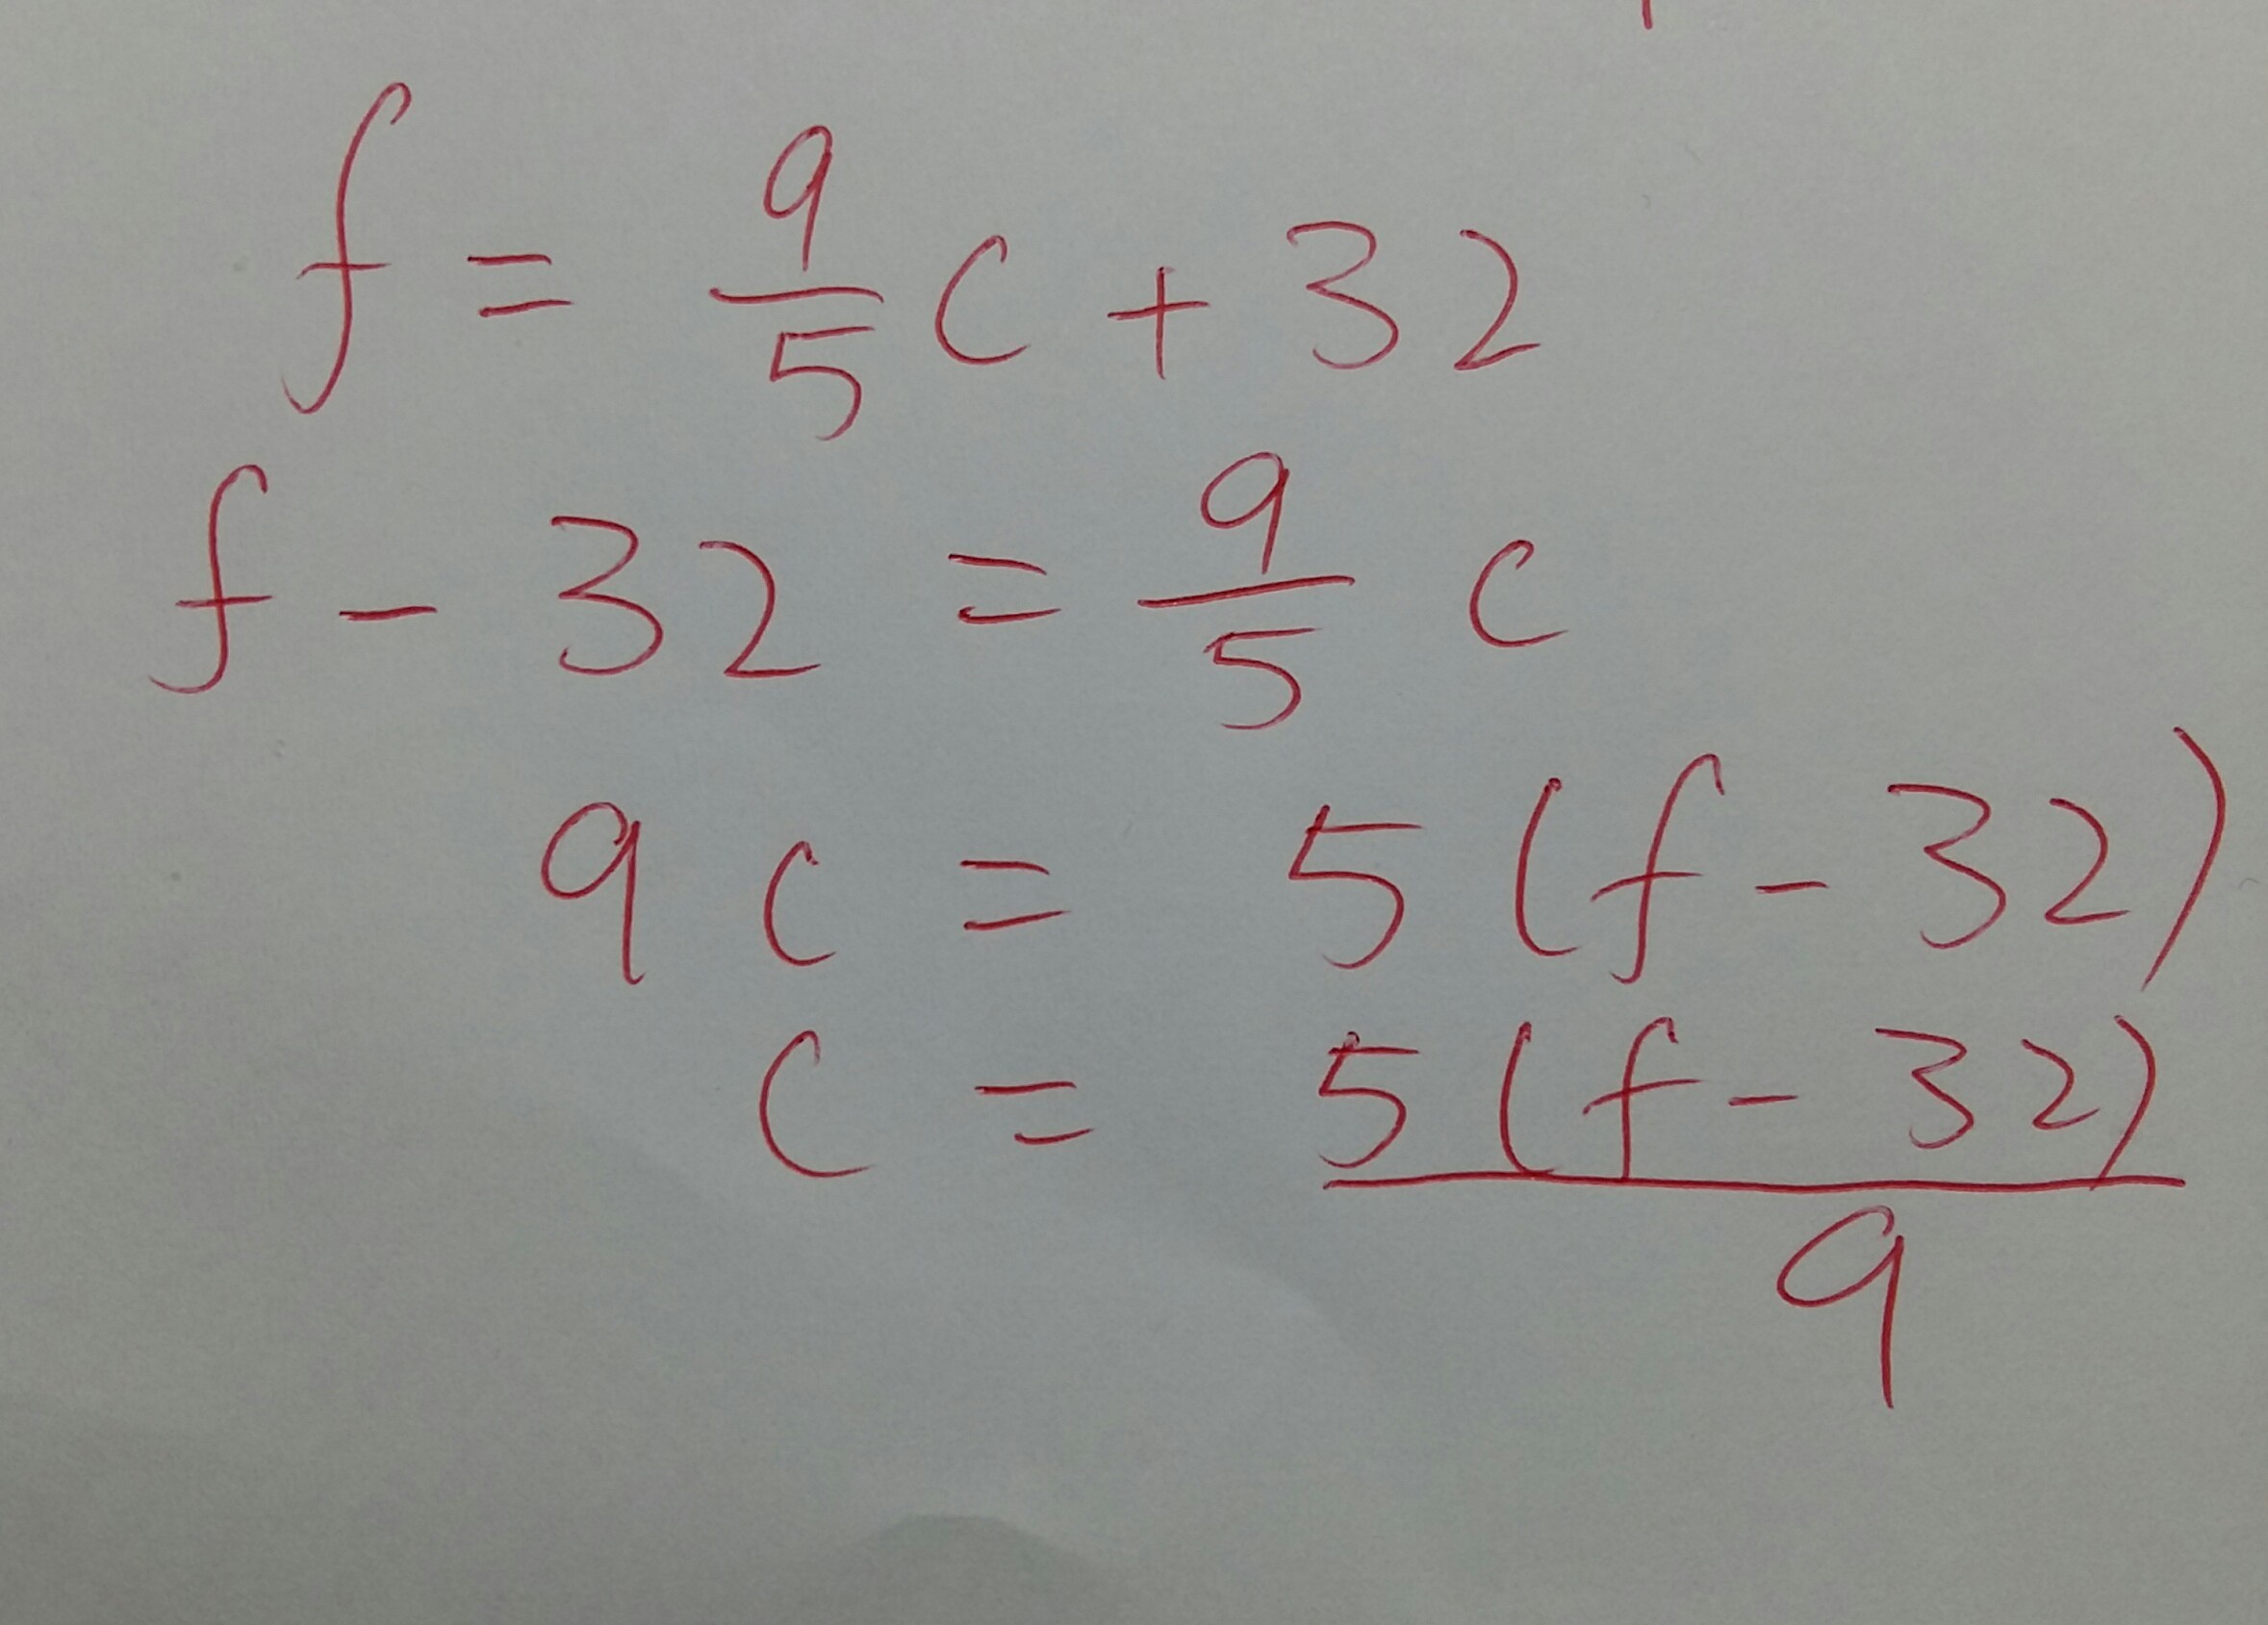 f = 9/5 c + 32
f - 32 = 9/5 c
9c = 5(f - 32)
c = 5(f - 32)/9